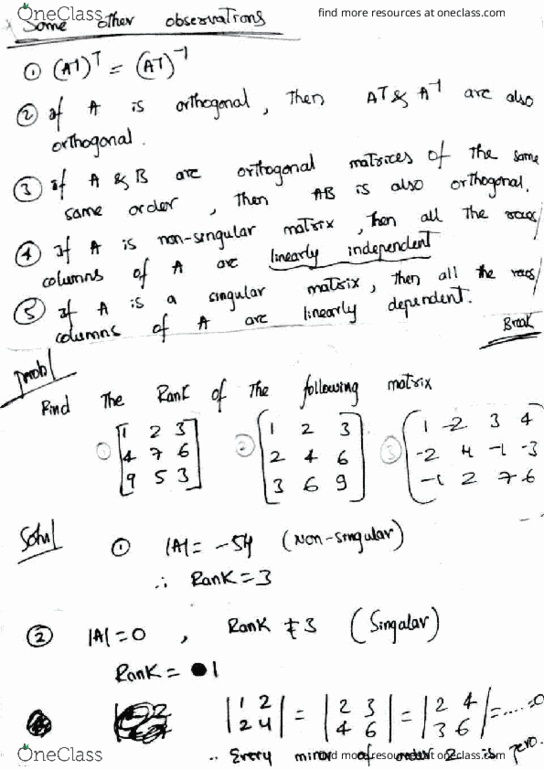 OneClass
find more resources at oneclass.com
Some other observations
① (A⁻¹)ᵀ = (Aᵀ)⁻¹
② If A is orthogonal, Then Aᵀ & A⁻¹ are also
orthogonal.
③ If A & B are orthogonal matrices of the same
same order, Then AB is also orthogonal.
④ If A is non-singular matrix, Then all the rows/
columns of A are linearly independent
⑤ If A is a singular matrix, Then all the rows/
columns of A are linearly dependent.
Break
Prob/
Find The Rank of The following matrix
① [1 2 3 ② [1 2 3 ③ (1 -2 3 4
4 7 6 2 4 6 -2 4 -1 -3
9 5 3] 3 6 9] -1 2 7 6)
Soln/
① |A| = -54 (Non-singular)
∴ Rank = 3
② |A| = 0, Rank ≠ 3 (Singular)
Rank = 1
|1 2 = |2 3 = |2 4 = .... = 0
2 4| 4 6| 3 6|
∵ Every minor of order 2 is zero.
OneClass
find more resources at oneclass.com